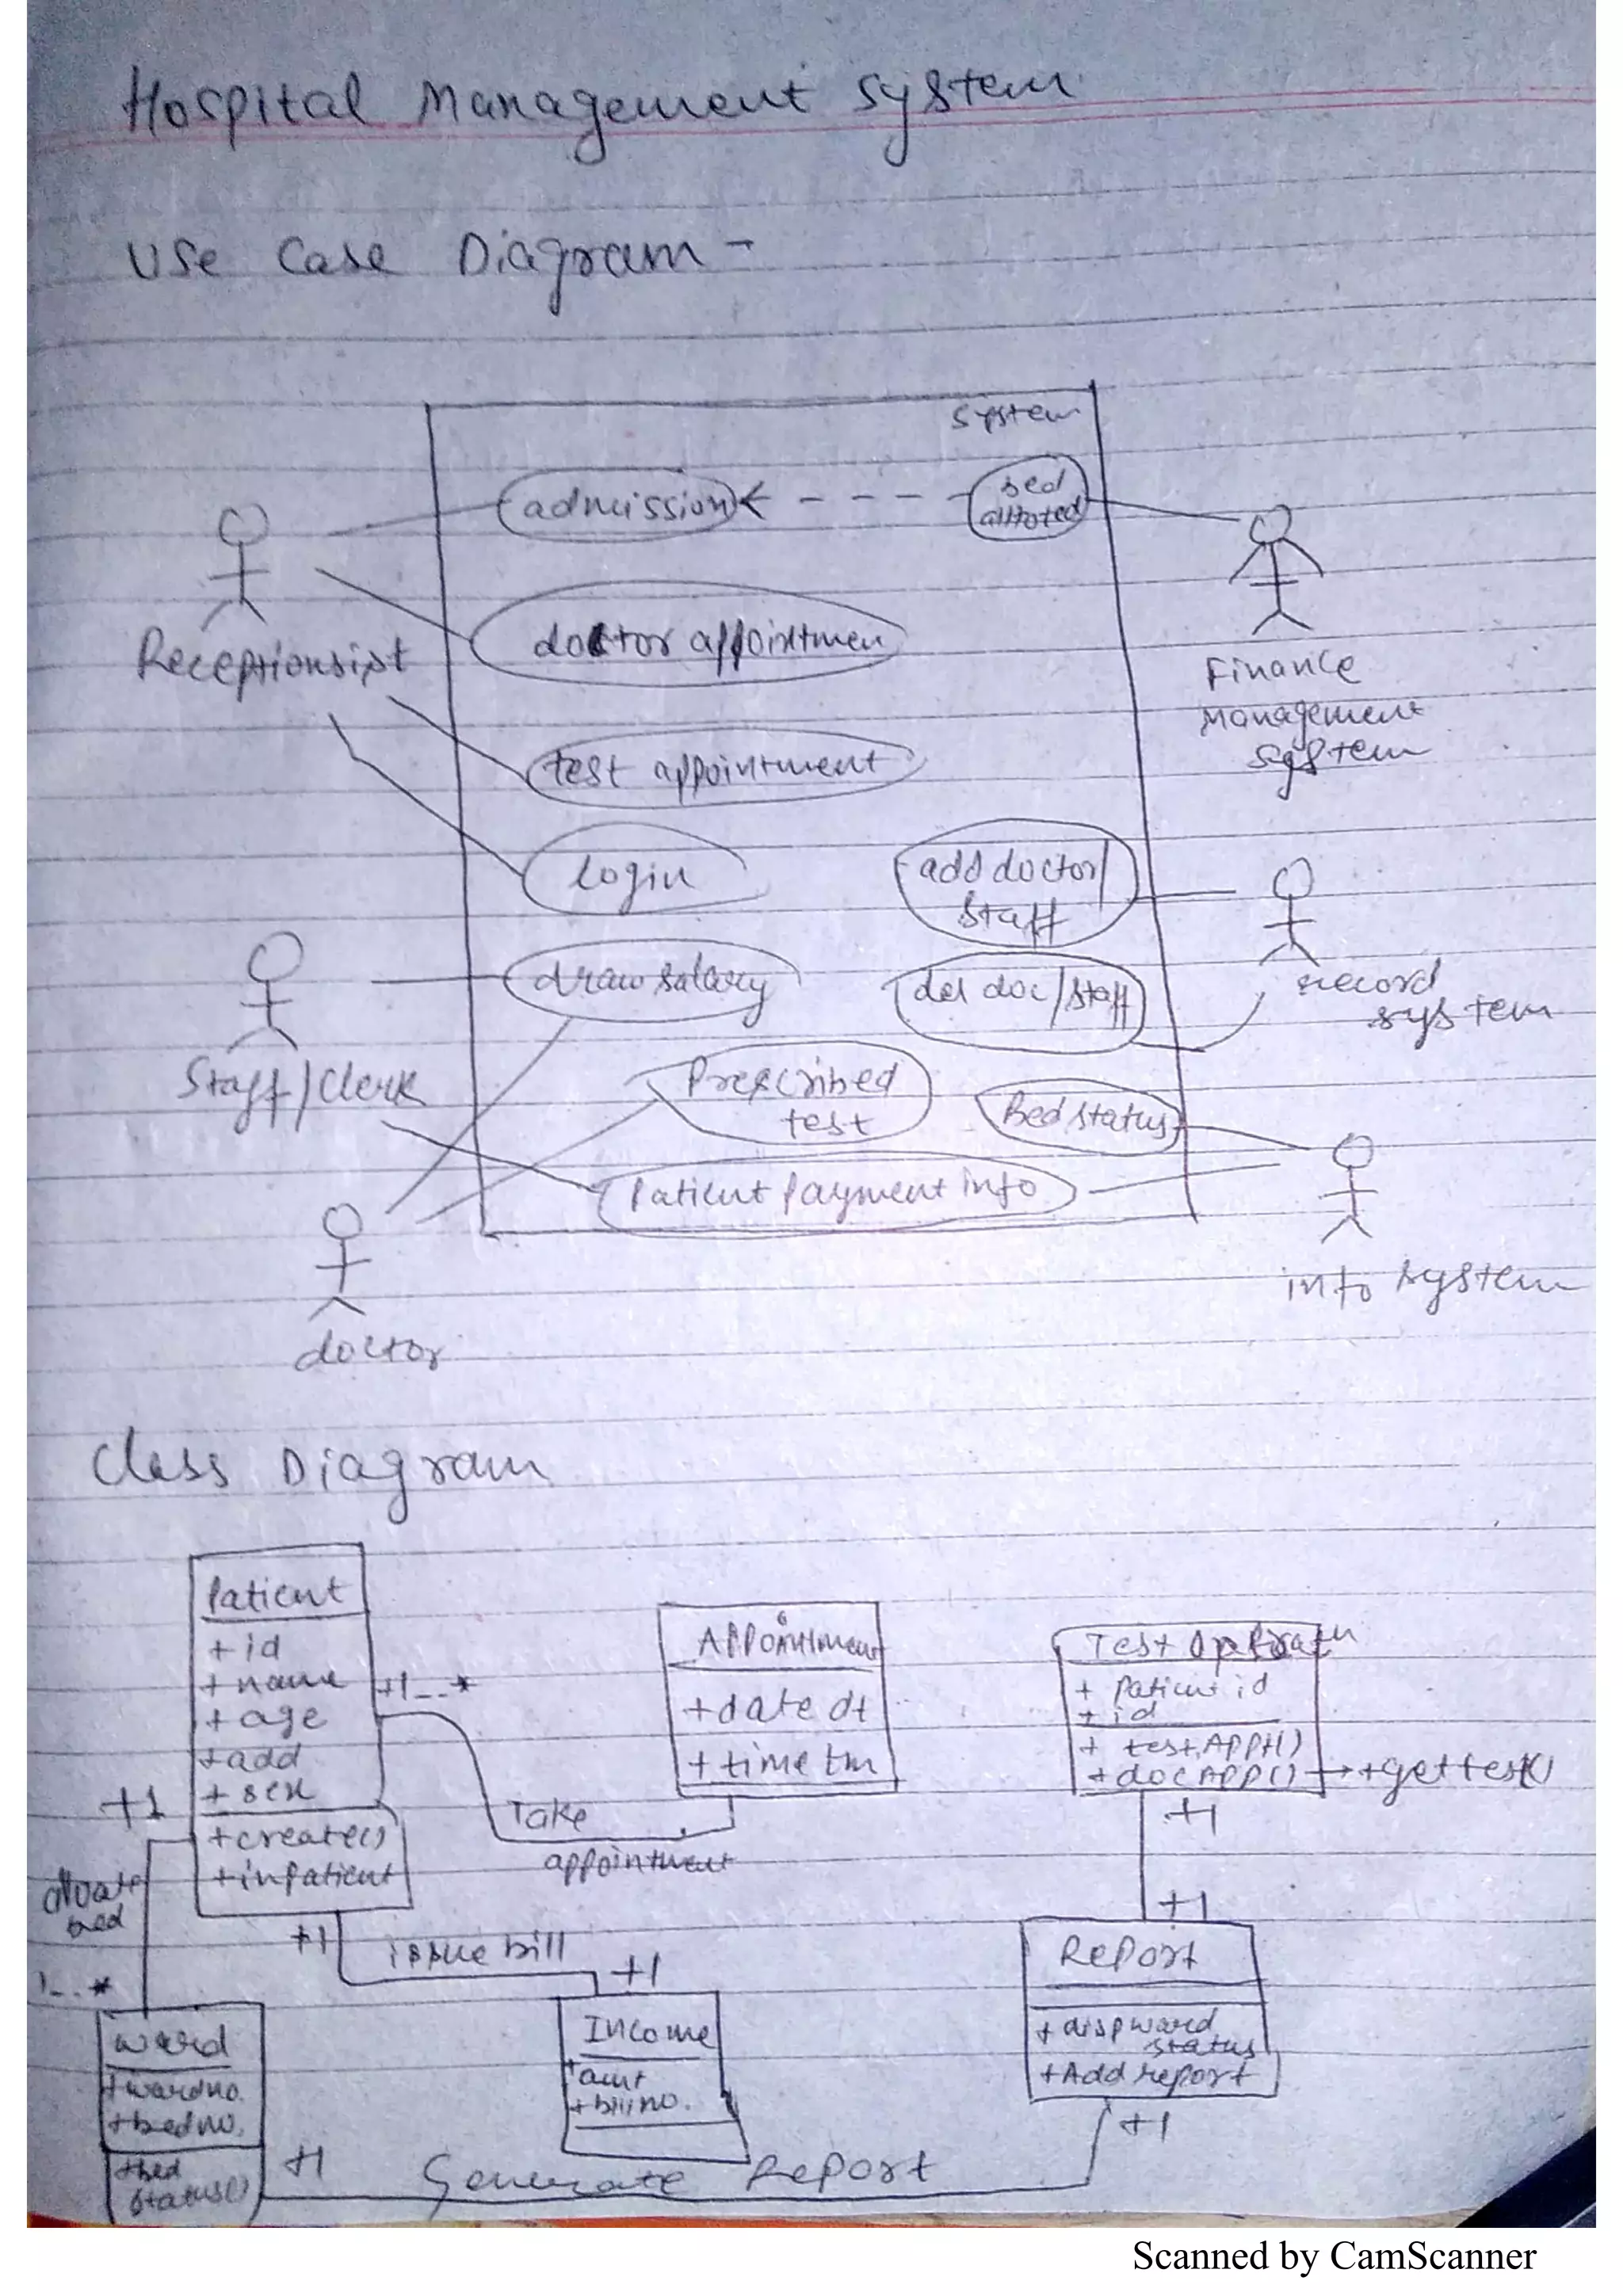 Hospital Management System
Use Case Diagram -
System
admission
bed
alltoted
doctor appointmen
Receptionsipt
Finance
Management
system
test appointment
login
add doctor/
staff
draw salary
del doc/staff
record
system
Staff/Clerk
Prescribed
test
Bed status
Patient payment info
info system
doctor
Class Diagram
Patient
+ id
+ name
+ age
+ add
+ sex
+ create()
+ inpatient
+1..*
Appointment
+ date dt
+ time tm
Test Operatn
+ Patient id
+ id
+ test APPt()
+ doc APP()
+ get test()
+1
Take
appointment
+1
bed
+1
+1
issue bill
+1
1..*
Report
+ disp ward
status
+ Add report
ward
+ wardno.
+ bedno.
+ bed
status()
Income
+ amt
+ billno.
+1
+1
Generate Report
Scanned by CamScanner